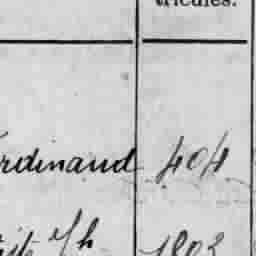 tricules.
rdinand 404
1803